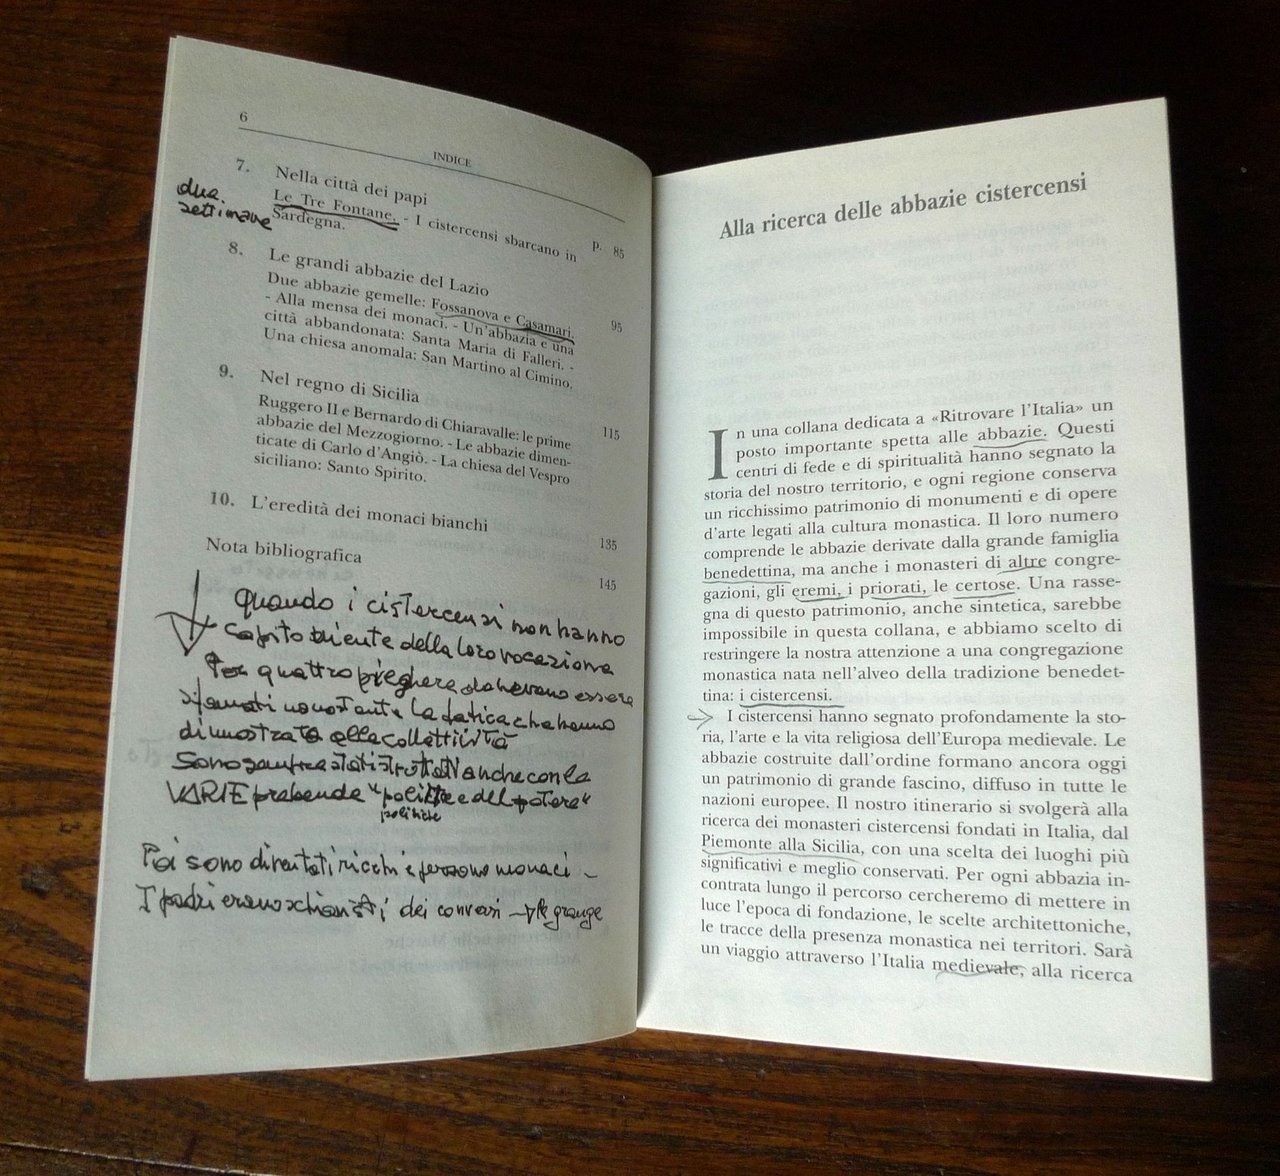 6
INDICE
7. Nella città dei papi
Le Tre Fontane. - I cistercensi sbarcano in
Sardegna. p. 85
due
settimane
8. Le grandi abbazie del Lazio
Due abbazie gemelle: Fossanova e Casamari.
- Alla mensa dei monaci. - Un'abbazia e una 95
città abbandonata: Santa Maria di Falleri. -
Una chiesa anomala: San Martino al Cimino.
9. Nel regno di Sicilia
Ruggero II e Bernardo di Chiaravalle: le prime 115
abbazie del Mezzogiorno. - Le abbazie dimen-
ticate di Carlo d'Angiò. - La chiesa del Vespro
siciliano: Santo Spirito.
10. L'eredità dei monaci bianchi 135
Nota bibliografica 145
quando i cistercensi non hanno
capito niente della loro vocazione
Per quattro preghiere dovevano essere
sfamati nonostante la fatica che hanno
dimostrato alla collettività
Sono sempre stati sfruttati anche con le
VARIE prebende "politiche e del potere"
politiche
Poi sono diventati ricchi e persono monaci -
I padri erano schiavisti dei conversi → le grange
Alla ricerca delle abbazie cistercensi
In una collana dedicata a «Ritrovare l'Italia» un
posto importante spetta alle abbazie. Questi
centri di fede e di spiritualità hanno segnato la
storia del nostro territorio, e ogni regione conserva
un ricchissimo patrimonio di monumenti e di opere
d'arte legati alla cultura monastica. Il loro numero
comprende le abbazie derivate dalla grande famiglia
benedettina, ma anche i monasteri di altre congre-
gazioni, gli eremi, i priorati, le certose. Una rasse-
gna di questo patrimonio, anche sintetica, sarebbe
impossibile in questa collana, e abbiamo scelto di
restringere la nostra attenzione a una congregazione
monastica nata nell'alveo della tradizione benedet-
tina: i cistercensi.
I cistercensi hanno segnato profondamente la sto-
ria, l'arte e la vita religiosa dell'Europa medievale. Le
abbazie costruite dall'ordine formano ancora oggi
un patrimonio di grande fascino, diffuso in tutte le
nazioni europee. Il nostro itinerario si svolgerà alla
ricerca dei monasteri cistercensi fondati in Italia, dal
Piemonte alla Sicilia, con una scelta dei luoghi più
significativi e meglio conservati. Per ogni abbazia in-
contrata lungo il percorso cercheremo di mettere in
luce l'epoca di fondazione, le scelte architettoniche,
le tracce della presenza monastica nei territori. Sarà
un viaggio attraverso l'Italia medievale, alla ricerca